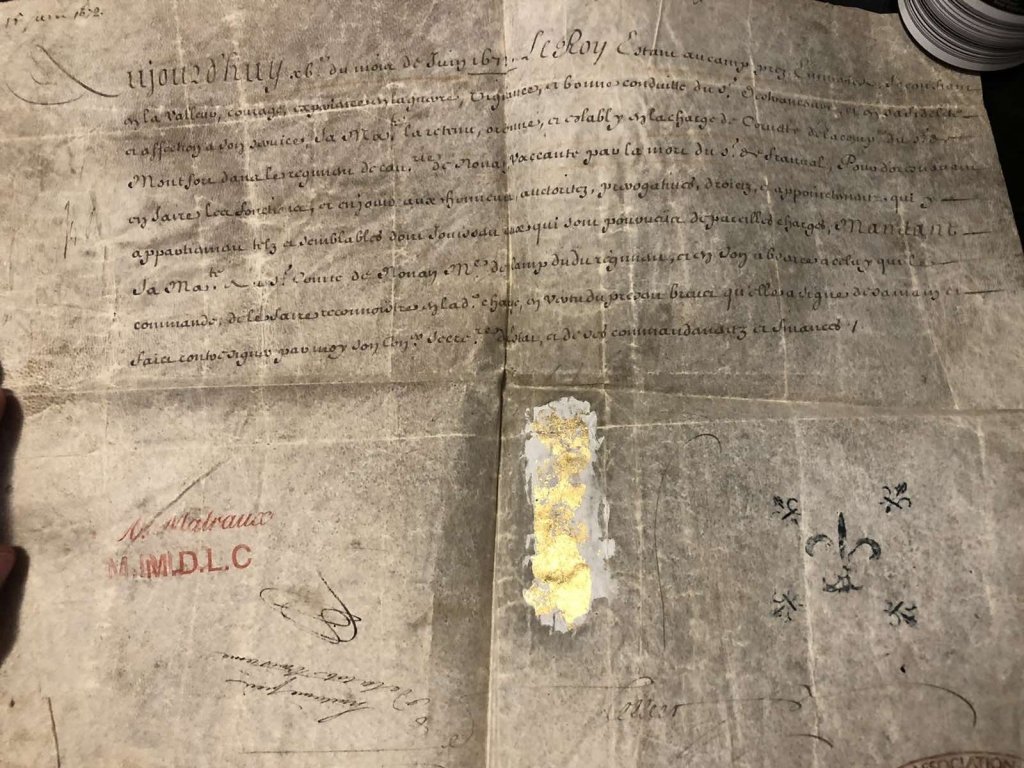 15 juin 1672.
Aujourd'huy xve. du mois de Juin 1672, Le Roy Estant au camp prez
en la valleur, courage, experience en la guerre, Vigilance, et bonne conduitte du Sr. et en sa fidelité
et affection a son service, Sa Mate. l'a retenu, ordonné, et estably en la charge de Cornette de la comp. du Sr. de
Montfort dans le regiment de cavrie. de Nonan, vaccante par la mort du Sr. de Franval, Pour doresnavant
en faire les fonctions, et en jouir aux honneurs, auctoritez, prerogatives, droictz, et appointemens qui y
appartiennent telz et semblables dont jouissent ceux qui sont pourveus de pareilles charges, Mandant
Sa Mate. au Sr. Comte de Nonan Me. de camp dudit regiment, et en son absence a celuy qui le
commande, de le faire reconnoistre en lad. charge, en vertu du present brevet qu'elle a signé de sa main et
faict contresigner par moy son Conr. Secrere. d'Estat, et de ses commandemens et finances /
N. Malraux
M.IM.D.L.C
ASSOCIATION